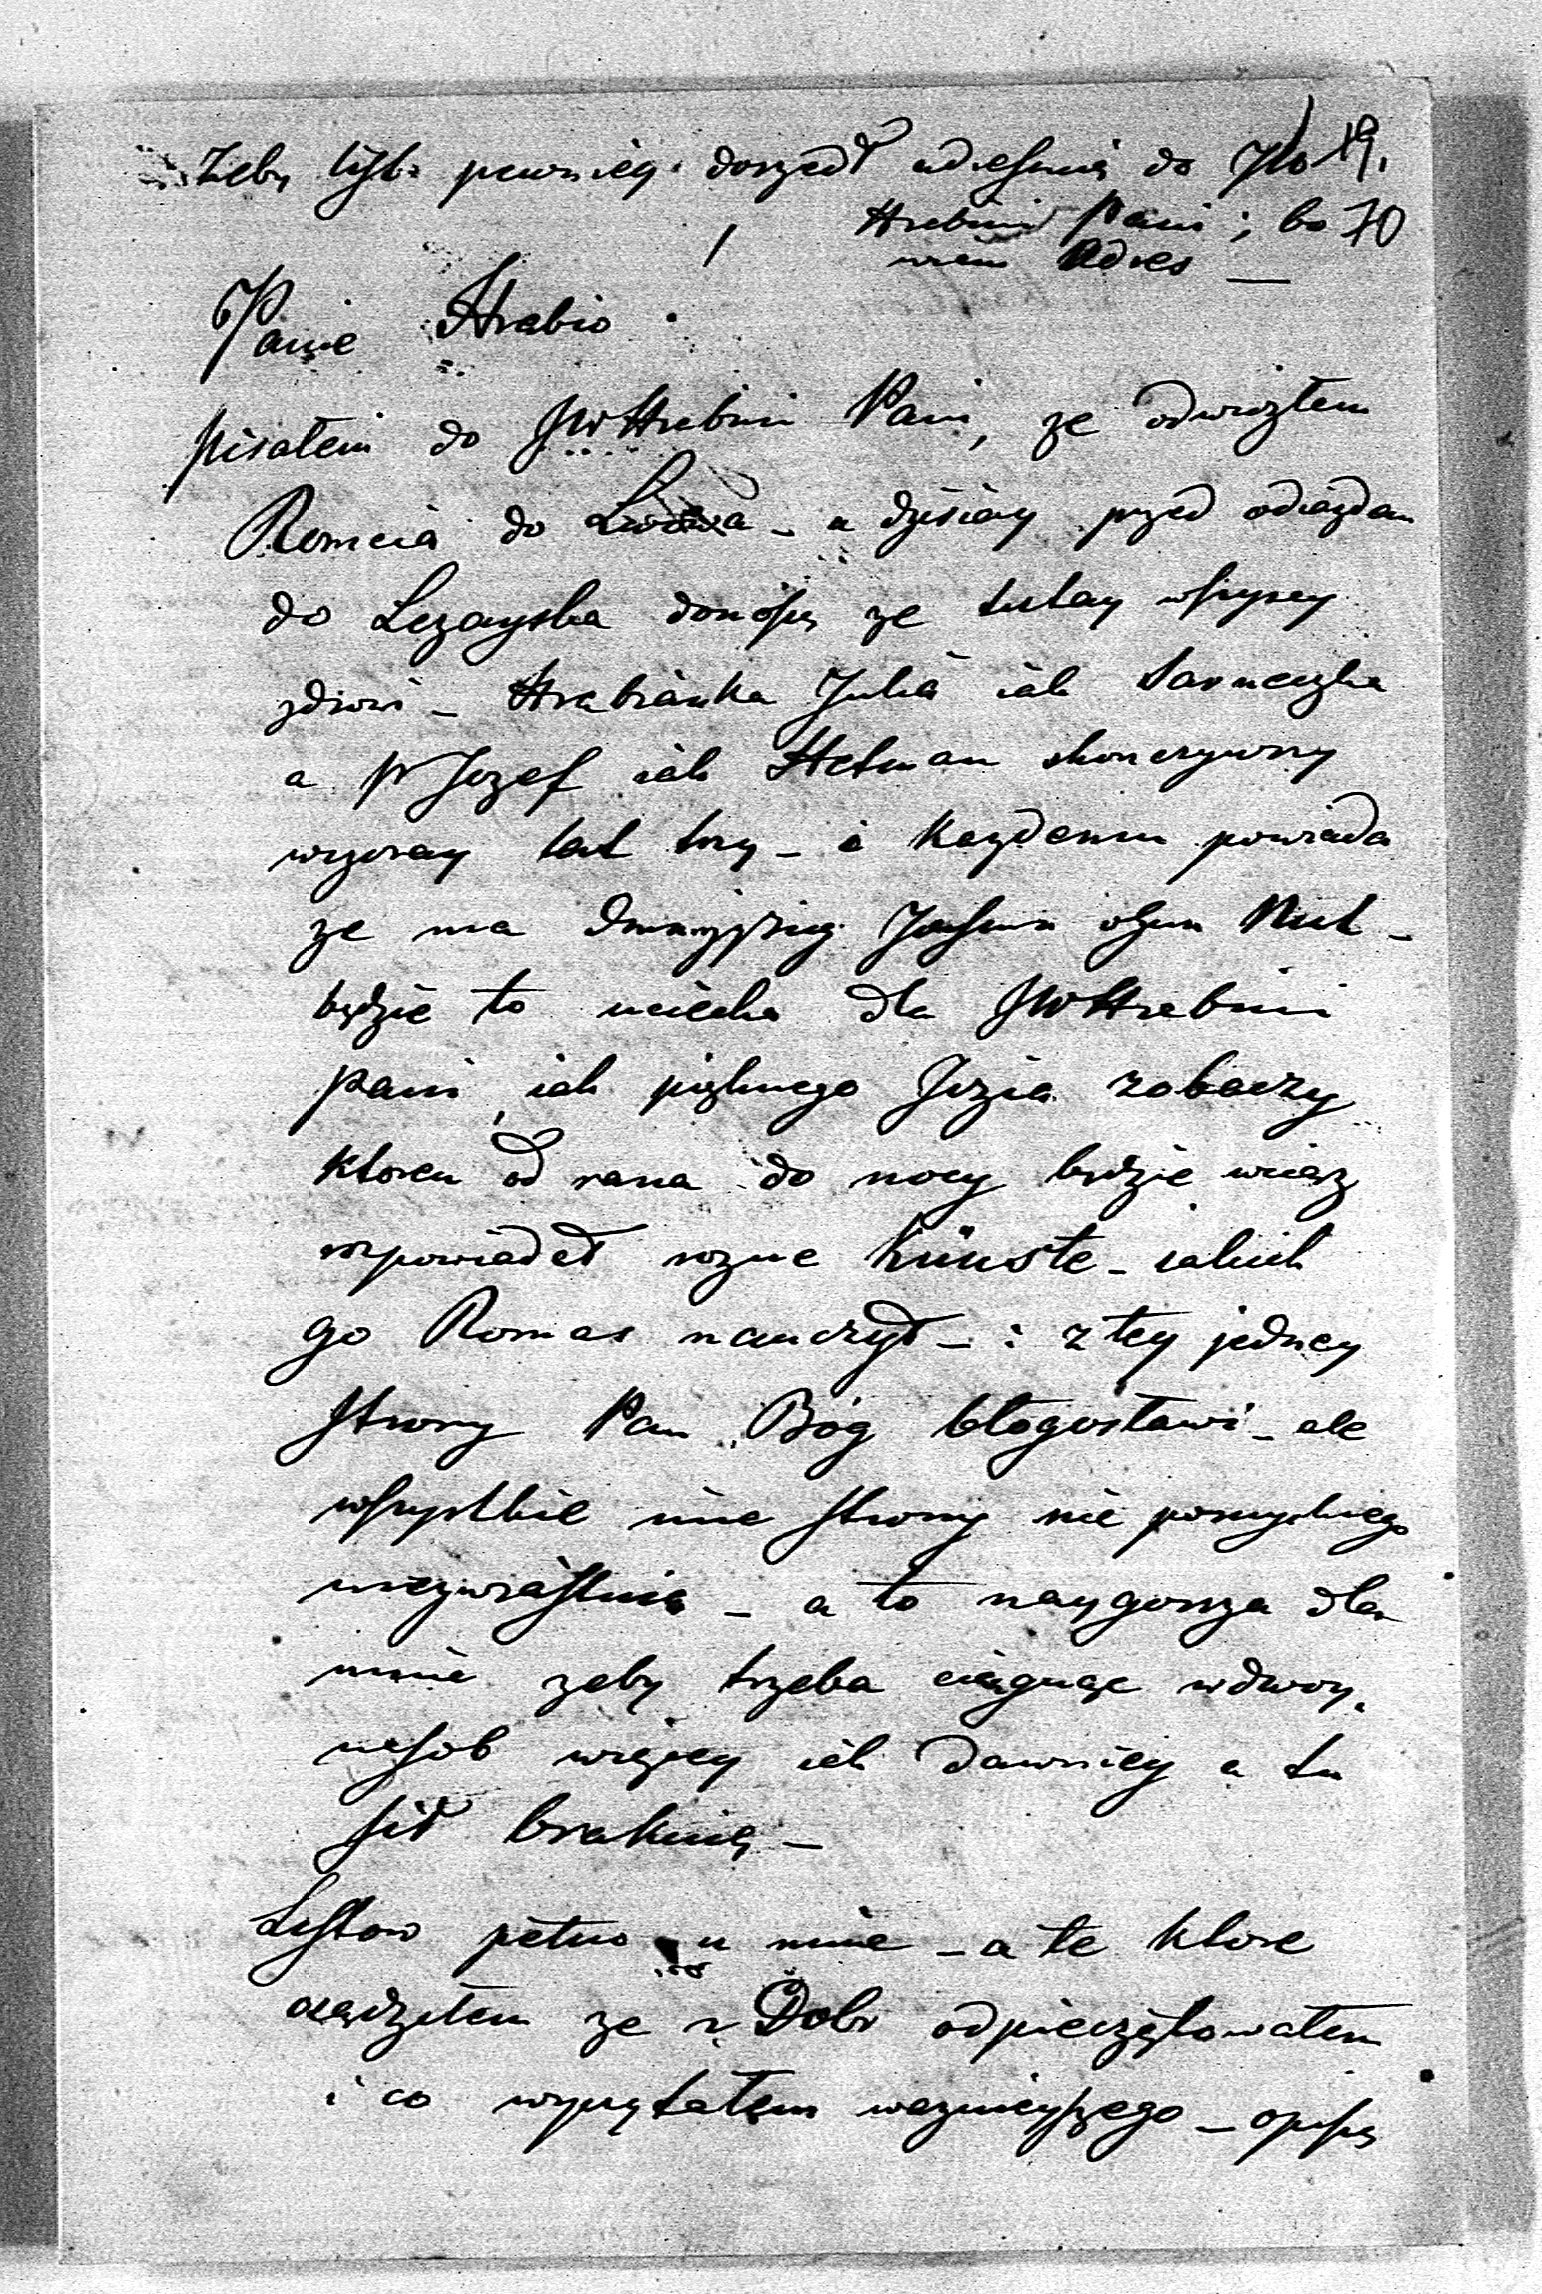 Zeby list pewniey doszedł adresuię do JW 19.
Hrabini Pani; bo 70
wiem Adres —
Panie Hrabio
pisałem do JWHrabini Pani, ze odwiozłem
Romcia do Lwowa – a dzisiay przed odiazdem
do Lezayska donoszę ze tutay wszyscy
zdrowi – Hrabianka Julia iak Sarneczka
a W Jozef iak Hetman skonczywszy
wczoray lat trzy – i kazdemu powiada
ze ma
będzie to uciecha dla JWHrabini
Pani, iak pięknego Jozia zobaczy
ktoren od rana do nocy będzie wciąz
rozpowiadał rozne Künste – iakich
go Romas nauczył – i z tey jedney
strony Pan Bóg błogosławi – ale
wszystkie inne strony nie pomyslnego
niezwiastuią – a to naygorsza dla
mnie zeby trzeba ciągnąc w dwoy
nasob więcey iak dawniey a tu
sił braknie –
Listow pełno u mnie – a te ktore
osądziłem ze z Dobr odpieczętowałem
i co wyczytałem waznieyszego – opiszę